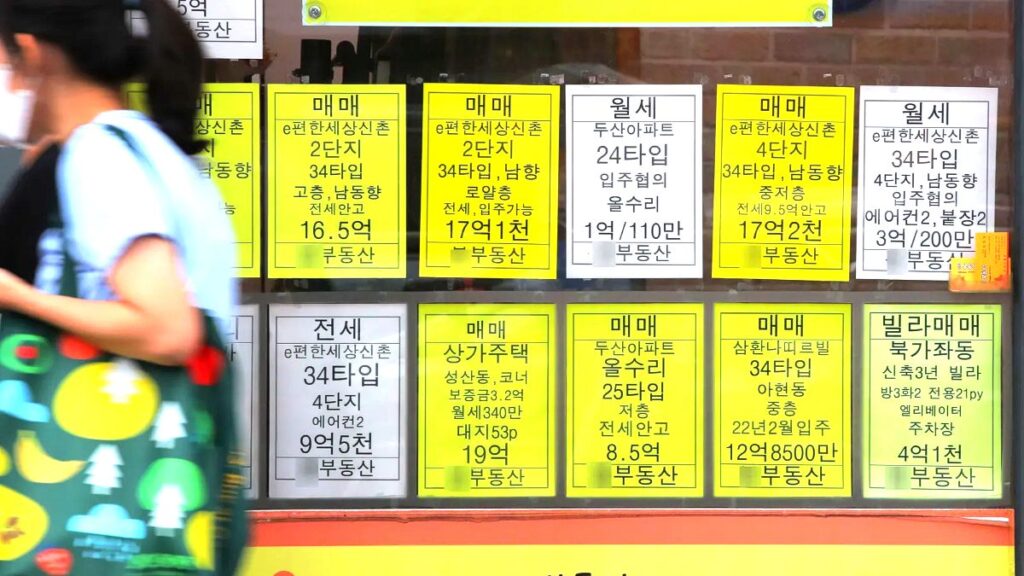 5억
부동산
매매
세상신촌
남동향
매매
e편한세상신촌
2단지
34타입
고층,남동향
전세안고
16.5억
부동산
매매
e편한세상신촌
2단지
34타입, 남향
로얄층
전세,입주가능
17억1천
부동산
월세
두산아파트
24타입
입주협의
올수리
1억/110만
부동산
매매
e편한세상신촌
4단지
34타입,남동향
중저층
전세9.5억안고
17억2천
부동산
월세
e편한세상신촌
34타입
4단지,남동향
입주협의
에어컨2, 붙장2
3억/200만
부동산
전세
e편한세상신촌
34타입
4단지
에어컨2
9억5천
부동산
매매
상가주택
성산동,코너
보증금3.2억
월세340만
대지53p
19억
부동산
매매
두산아파트
올수리
25타입
저층
전세안고
8.5억
부동산
매매
삼환나띠르빌
34타입
아현동
중층
22년2월입주
12억8500만
부동산
빌라매매
북가좌동
신축3년 빌라
방3화2 전용21py
엘리베이터
주차장
4억1천
부동산